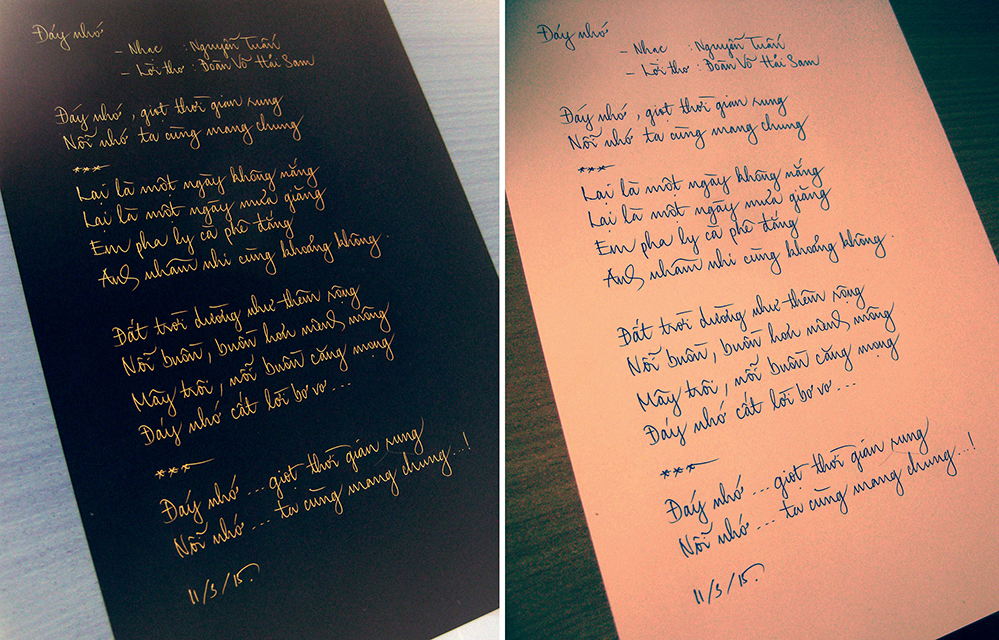 Đáy nhớ
- Nhạc : Nguyễn Tuấn
- Lời thơ : Đoàn Võ Hải Sam
Đáy nhớ, giọt thời gian rung
Nỗi nhớ ta cùng mang chung
***
Lại là một ngày không nắng
Lại là một ngày mưa giăng
Em pha ly cà phê đắng
Anh nhâm nhi cùng khoảng không.
Đất trời dường như thêm rộng
Nỗi buồn, buồn hơn mênh mông
Mây trôi, nỗi buồn căng mọng
Đáy nhớ cất lời bơ vơ...
***
Đáy nhớ ... giọt thời gian rung
Nỗi nhớ ... ta cùng mang chung...!
11/3/15.
Đáy nhớ
- Nhạc : Nguyễn Tuấn
- Lời thơ : Đoàn Võ Hải Sam
Đáy nhớ, giọt thời gian rung
Nỗi nhớ ta cùng mang chung
***
Lại là một ngày không nắng
Lại là một ngày mưa giăng
Em pha ly cà phê đắng
Anh nhâm nhi cùng khoảng không.
Đất trời dường như thêm rộng
Nỗi buồn, buồn hơn mênh mông
Mây trôi, nỗi buồn căng mọng
Đáy nhớ cất lời bơ vơ...
***
Đáy nhớ ... giọt thời gian rung
Nỗi nhớ ... ta cùng mang chung...!
11/3/15.